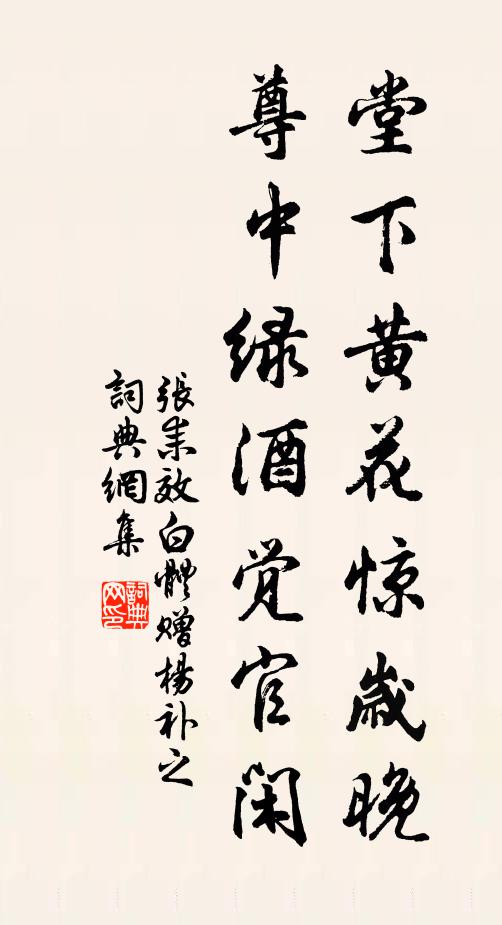 堂下黄花惊歲晚
尊中绿酒覺官闲
張耒效白體贈楊补之
詞典網集
詞典网印